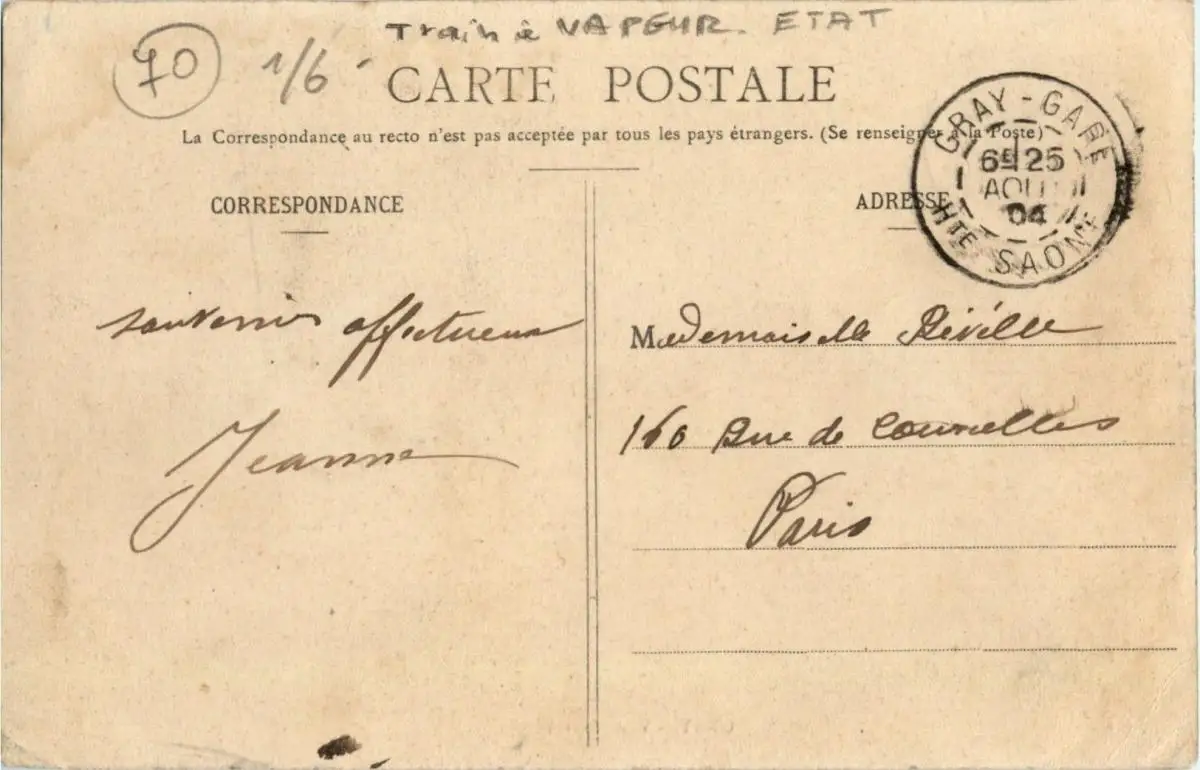 Train à VAPEUR. ETAT
70 1/6
CARTE POSTALE
La Correspondance au recto n'est pas acceptée par tous les pays étrangers. (Se renseigner à la Poste)
GRAY - GARE
6E 25
AOUT
04
HTE SAONE
CORRESPONDANCE
ADRESSE
souvenirs affectueux
Jeanne
Mademoiselle Réville
160 Rue de Courcelles
Paris